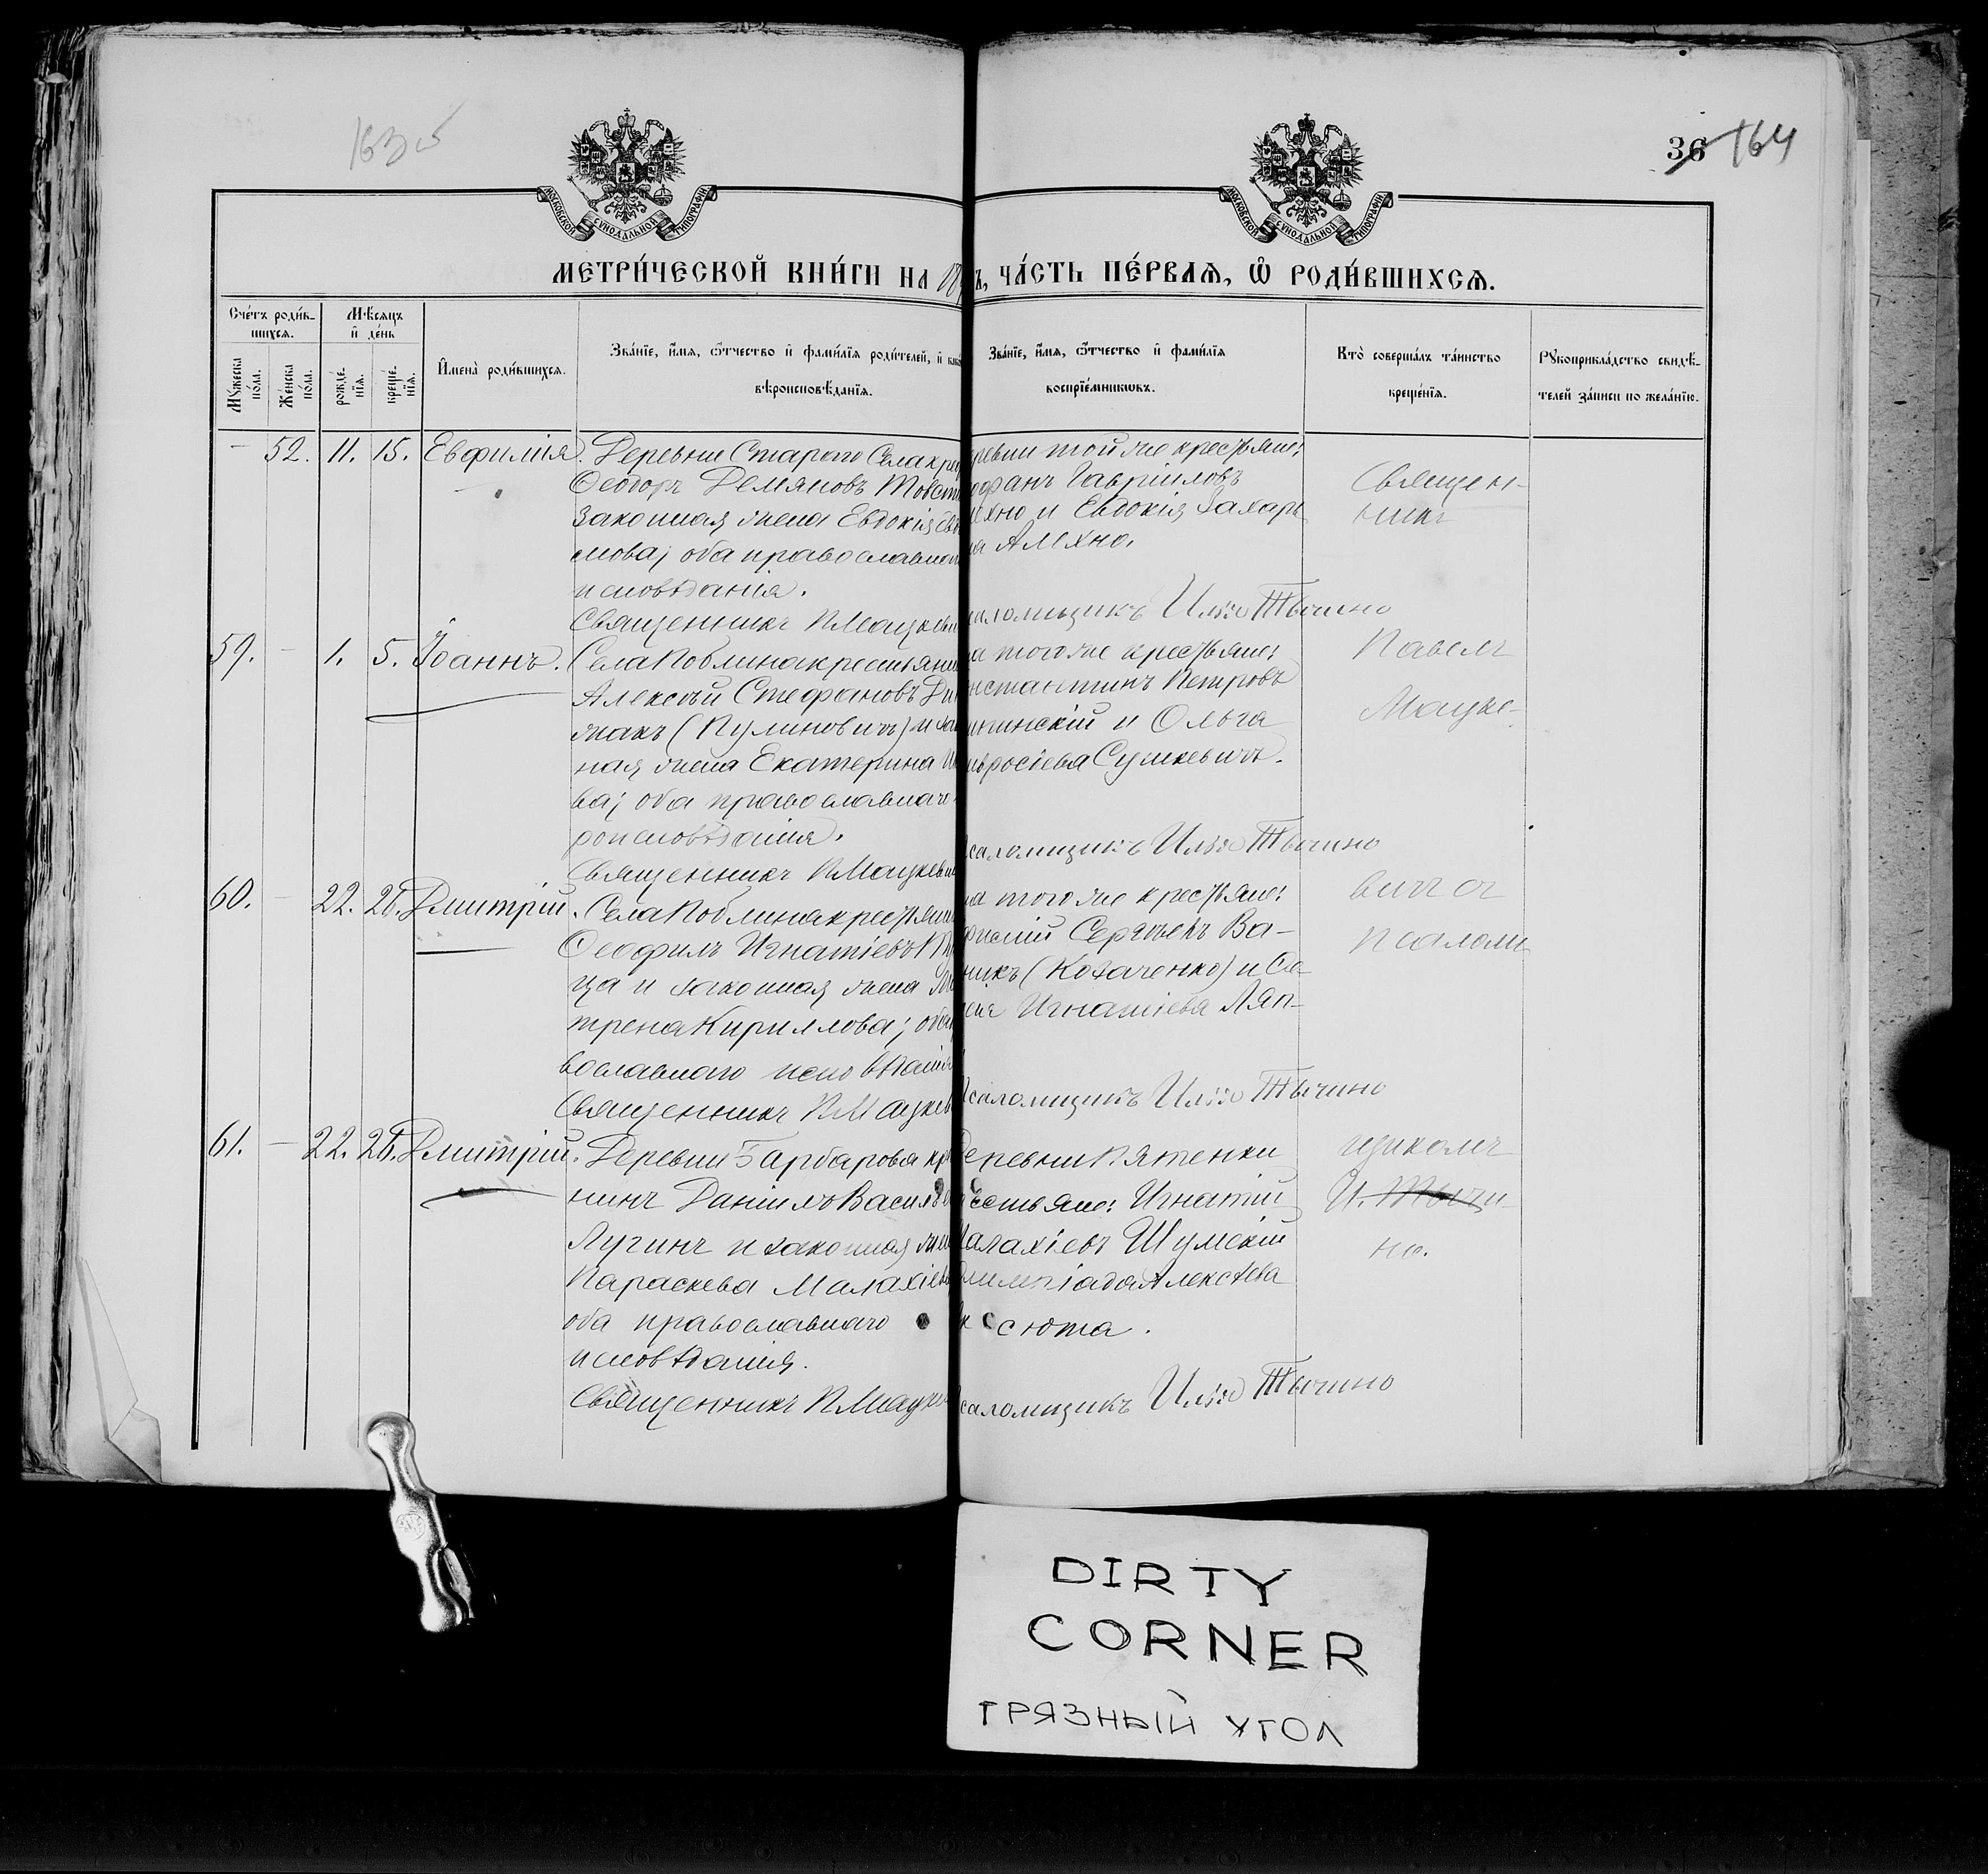 163 об
36 164
МОСКОВСКОЙ СѴНОДАЛЬНОЙ ТИПОГРАФІИ
МОСКОВСКОЙ СѴНОДАЛЬНОЙ ТИПОГРАФІИ
МЕТРИ́ЧЕСКОЙ КНИ́ГИ НА 18
ъ, ЧА́СТЬ ПЕ́РВАѦ, Ѡ҆ РОДИ́ВШИХСѦ.
Сче́тъ роди́в-
шихсѧ.
Мꙋ́жеска по́ла.
Же́нска по́ла.
Мѣ́сѧцъ
и҆ де́нь
рожде́-
нїѧ.
креще́-
нїѧ.
И҆мена̀ роди́вшихсѧ.
Зва́нїе, и҆́мѧ, ѻ҆́тчество и҆ фами́лїѧ роди́телей, и҆ как
вѣроисповѣ́данїѧ.
Зва́нїе, и҆́мѧ, ѻ҆́тчество и҆ фами́лїѧ
воспрїе́мникѡвъ.
Кто̀ соверша́лъ та́инство
креще́нїѧ.
Рꙋкоприкла́дство свидѣ́-
телей за́писи по жела́нїю.
— 52. 11. 15. Евфимія.
Деревни Старого Села кре
Ѳеодоръ Демяновъ Товст
законная жена Евдокія Ев
мова; оба православнаг
исповѣданія.
Священникъ П Мацкеви
ревни той же крестьяне:
офанъ Гавріиловъ
ихно и Евдокія Захарь
на Алехно.
саломщикъ Илья Тычино
59. — 1. 5. Іоаннъ.
Села Поблина крестьяни
Алексѣй Стефановъ Ди
жакъ (Кулиновичъ) и зак
ная жена Екатерина И
ва; оба православнаго
роисповѣданія.
Священникъ П Мацкеви
а того же крестьяне:
нстантинъ Петровъ
инскій и Ольга
вросіева Сушкевичъ.
саломщикъ Илья Тычино
60. — 22. 26. Дмитрій.
Села Поблина крестьяни
Ѳеофилъ Игнатіевъ К
ца и законная жена Ма
трена Кириллова; оба
вославнаго исповѣданія
Священникъ П Мацкев
ла того же крестьяне:
Сергѣевъ Ва-
никъ (Козаченко) и Се-
Игнатіева Ляп-
саломщикъ Илья Тычино
61. — 22. 26. Дмитрій.
Деревни Барбарова кре
нинъ Даніилъ Васильев
Лугинъ и законная жен
Параскева Малахіев
оба православнаго
исповѣданія.
Священникъ П Мацке
Деревни Пятенки
естьяне: Игнатій
Малахіевъ Шумскій
лимпіада Алексѣева
ксюта.
саломщикъ Илья Тычино
Священ-
никъ
Павелъ
Мацке-
вичъ съ
псалом
щикомъ
И. Тычи-
но.
DIRTY
CORNER
ГРЯЗНЫЙ УГОЛ